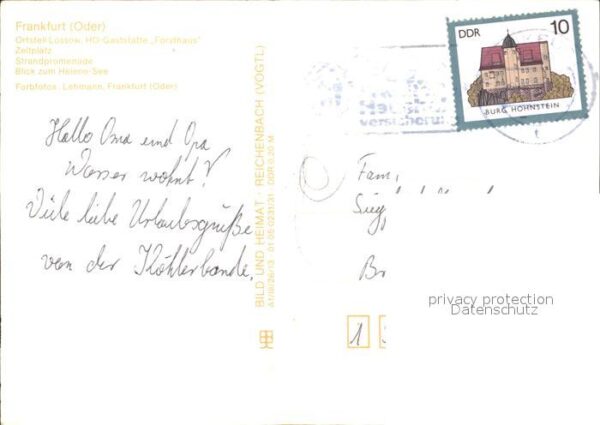 Frankfurt (Oder)
Ortsteil Lossow, HO-Gaststätte „Forsthaus"
Zeltplatz
Strandpromenade
Blick zum Helene-See
Farbfotos: Lehmann, Frankfurt (Oder)
Hallo Oma und Opa
Wasser wohnt?
Viele liebe Urlaubsgrüße
von der Köhlerbande.
BILD UND HEIMAT REICHENBACH (VOGTL)
A1/III/26/13 01 05 0231/31 DDR 0,20 M
DDR 10
BURG HOHNSTEIN
versicheru
Fam.
Sieg
Br
privacy protection
Datenschutz
1